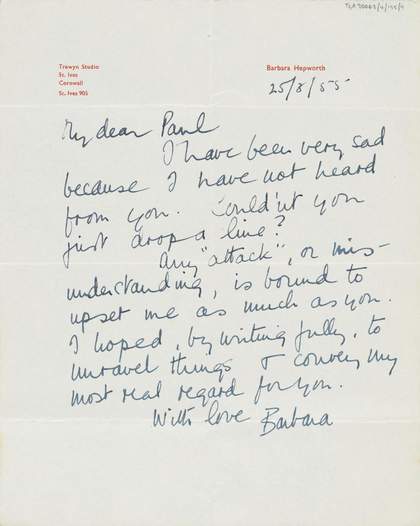 Trewyn Studio
St. Ives
Cornwall
St. Ives 905
Barbara Hepworth
25/8/55
My dear Paul
I have been very sad
because I have not heard
from you. Could'nt you
just drop a line?
Any "attack", or mis-
understanding, is bound to
upset me as much as you.
I hoped, by writing fully, to
unravel things & convey my
most real regard for you.
With love Barbara